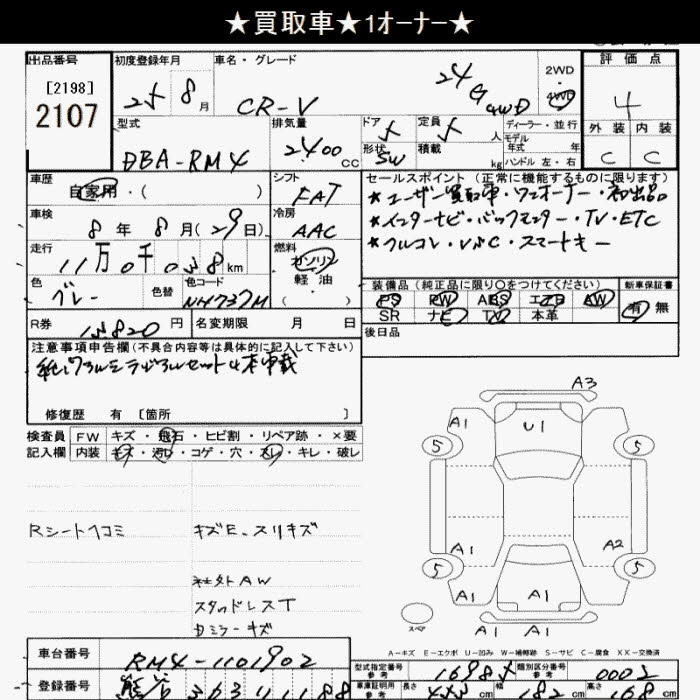 ★買取車★1オーナー★
出品番号
[2198]
2107
初度登録年月
25 8月
車名・グレード
CR-V 24G 4WD
2WD
4WD
評価点
4
外装 内装
C C
型式
DBA-RM4
排気量
2400cc
ドア 5
形状 SW
定員 5人
積載 kg
ディーラー・並行
モデル年式 年
ハンドル 左・右
車歴
自家用・( )
シフト
FAT
車検
8年 8月(29日)
冷房
AAC
走行
11万0千038km
燃料
ガソリン
軽油
( )
色
グレー
色替
色コード
NH737M
R券
円
名変期限 月 日
セールスポイント(正常に機能するものに限ります)
★ユーザー買取車・ワンオーナー・初出品
★インターナビ・バックモニター・TV・ETC
★フルコレ・VSC・スマートキー
装備品(純正品に限り○をつけてください)
新車保証書
PS PW ABS エアB AW
SR ナビ TV 本革
有 無
後日品
注意事項申告欄(不具合内容等は具体的に記入して下さい)
修復歴 有 [箇所 ]
検査員記入欄
FW キズ・飛石・ヒビ割・リペア跡・×要
内装 キズ・汚れ・コゲ・穴・スレ・キレ・破レ
Rシートヘコミ
キズE、スリキズ
社外AW
スタッドレスT
Dミラーキズ
A3
A1 U1 A1
5 5
A1 A2
5 5
A1 A1 A1
スペア
A1 A1
A−キズ E−エクボ U−凹み W−補修跡 S−サビ C−腐食 XX−交換済
車台番号
RM4-1101902
型式指定番号 参考
16985
類別区分番号 参考
0002
登録番号
車庫証明用 参考
長さ cm
幅 182 cm
高さ 168 cm